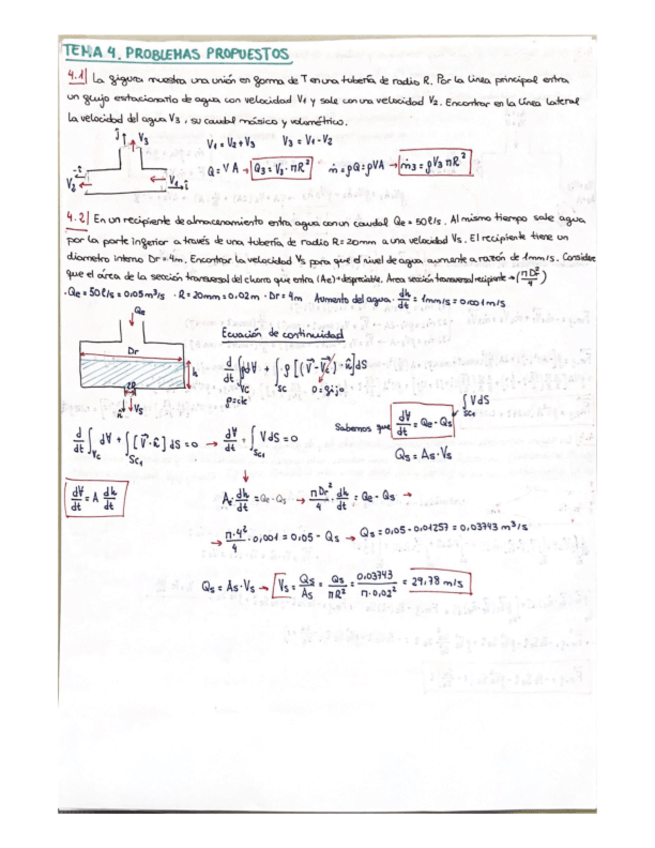 TEMA 4. PROBLEMAS PROPUESTOS
4.1) La figura muestra una unión en forma de T en una tubería de radio R. Por la línea principal entra
un flujo estacionario de agua con velocidad V1 y sale con una velocidad V2. Encontrar en la línea lateral
la velocidad del agua V3, su caudal másico y volumétrico.
ĵ V3
V1 = V2 + V3 V3 = V1 - V2
-î V2 V1 î
Q = V A → Q3 = V3 · πR² ṁ = ρQ = ρVA → ṁ3 = ρV3πR²
4.2) En un recipiente de almacenamiento entra agua con un caudal Qe = 50 l/s. Al mismo tiempo sale agua
por la parte inferior a través de una tubería de radio R = 20mm a una velocidad Vs. El recipiente tiene un
diámetro interno Dr = 4m. Encontrar la velocidad Vs para que el nivel de agua aumente a razón de 1mm/s. Considere
que el área de la sección transversal del chorro que entra (Ae) es despreciable. Área sección transversal recipiente → (πD²r/4)
· Qe = 50 l/s = 0,05 m³/s · R = 20mm = 0,02m · Dr = 4m Aumento del agua · dh/dt = 1mm/s = 0,001 m/s
Qe
Ecuación de continuidad
Dr
h
d/dt ∫VC ρdV + ∫SC ρ[(V - Vc)·n̂]dS
ρ = ctc 0 = fijo
2R
n̂ Vs
d/dt ∫VC dV + ∫SC1 [V·n̂] dS = 0 → dV/dt + ∫SC1 V dS = 0
Sabemos que dV/dt = Qe - Qs
∫SC1 V dS
Qs = As · Vs
dV/dt = A dh/dt
A · dh/dt = Qe - Qs → πDr²/4 · dh/dt = Qe - Qs →
→ π·4²/4 · 0,001 = 0,05 - Qs → Qs = 0,05 - 0,01257 = 0,03743 m³/s
Qs = As · Vs → Vs = Qs/As = Qs/πR² = 0,03743/π·0,02² = 29,78 m/s